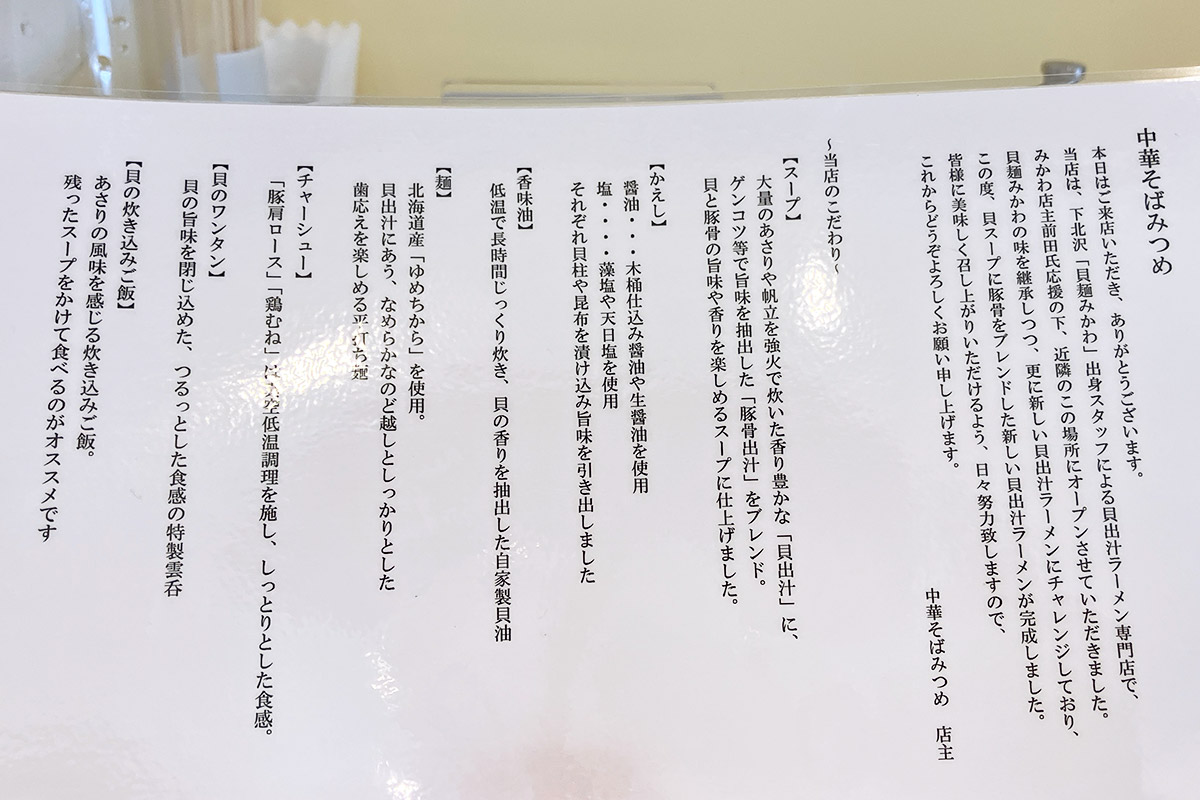 中華そばみつめ
本日はご来店いただき、ありがとうございます。
当店は、下北沢「貝麺みかわ」出身スタッフによる貝出汁ラーメン専門店で、
みかわ店主前田氏応援の下、近隣のこの場所にオープンさせていただきました。
貝麺みかわの味を継承しつつ、更に新しい貝出汁ラーメンにチャレンジしており、
この度、貝スープに豚骨をブレンドした新しい貝出汁ラーメンが完成しました。
皆様に美味しく召し上がりいただけるよう、日々努力致しますので、
これからどうぞよろしくお願い申し上げます。
中華そばみつめ 店主
～当店のこだわり～
【スープ】
大量のあさりや帆立を強火で炊いた香り豊かな「貝出汁」に、
ゲンコツ等で旨味を抽出した「豚骨出汁」をブレンド。
貝と豚骨の旨味や香りを楽しめるスープに仕上げました。
【かえし】
醤油・・・木桶仕込み醤油や生醤油を使用
塩・・・・藻塩や天日塩を使用
それぞれ貝柱や昆布を漬け込み旨味を引き出しました
【香味油】
低温で長時間じっくり炊き、貝の香りを抽出した自家製貝油
【麺】
北海道産「ゆめちから」を使用。
貝出汁にあう、なめらかなのど越しとしっかりとした
歯応えを楽しめる平打ち麺
【チャーシュー】
「豚肩ロース」「鶏むね」は真空低温調理を施し、しっとりとした食感。
【貝のワンタン】
貝の旨味を閉じ込めた、つるっとした食感の特製雲呑
【貝の炊き込みご飯】
あさりの風味を感じる炊き込みご飯。
残ったスープをかけて食べるのがオススメです